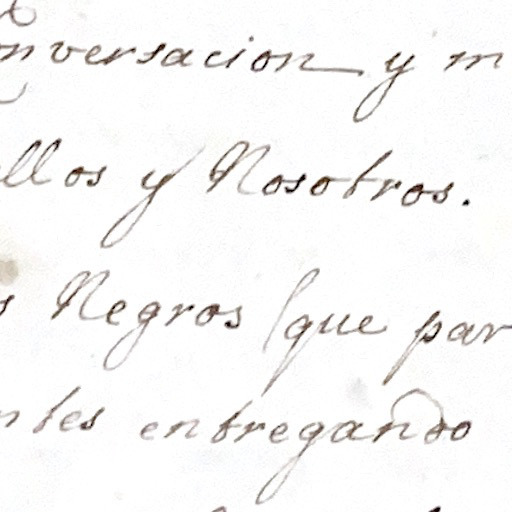 nversacion y m
llos y Nosotros.
s Negros (que par
ntes entregando